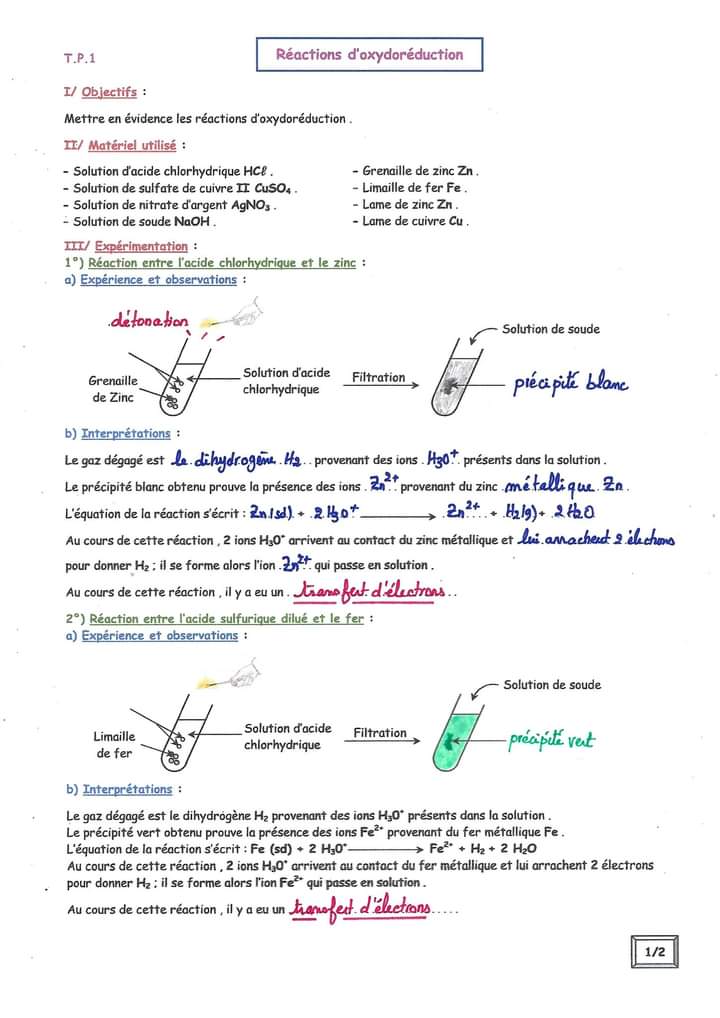 T.P.1
Réactions d'oxydoréduction
I/ Objectifs :
Mettre en évidence les réactions d'oxydoréduction .
II/ Matériel utilisé :
- Solution d'acide chlorhydrique HCℓ .
- Solution de sulfate de cuivre II CuSO₄ .
- Solution de nitrate d'argent AgNO₃ .
- Solution de soude NaOH .
- Grenaille de zinc Zn .
- Limaille de fer Fe .
- Lame de zinc Zn .
- Lame de cuivre Cu .
III/ Expérimentation :
1°) Réaction entre l'acide chlorhydrique et le zinc :
a) Expérience et observations :
.détonation
Grenaille
de Zinc
Solution d'acide
chlorhydrique
Filtration
Solution de soude
précipité blanc
b) Interprétations :
Le gaz dégagé est le dihydrogène H₂ . . provenant des ions . H₃O⁺ . présents dans la solution .
Le précipité blanc obtenu prouve la présence des ions . Zn²⁺ provenant du zinc .métallique. Zn .
L'équation de la réaction s'écrit : Zn(sd) + 2 H₃O⁺ → Zn²⁺ . . + H₂(g) + 2 H₂O
Au cours de cette réaction , 2 ions H₃O⁺ arrivent au contact du zinc métallique et lui arrachent 2 électrons
pour donner H₂ ; il se forme alors l'ion .Zn²⁺ . qui passe en solution .
Au cours de cette réaction , il y a eu un . transfert d'électrons . .
2°) Réaction entre l'acide sulfurique dilué et le fer :
a) Expérience et observations :
Limaille
de fer
Solution d'acide
chlorhydrique
Filtration
Solution de soude
précipité vert
b) Interprétations :
Le gaz dégagé est le dihydrogène H₂ provenant des ions H₃O⁺ présents dans la solution .
Le précipité vert obtenu prouve la présence des ions Fe²⁺ provenant du fer métallique Fe .
L'équation de la réaction s'écrit : Fe (sd) + 2 H₃O⁺ → Fe²⁺ + H₂ + 2 H₂O
Au cours de cette réaction , 2 ions H₃O⁺ arrivent au contact du fer métallique et lui arrachent 2 électrons
pour donner H₂ ; il se forme alors l'ion Fe²⁺ qui passe en solution .
Au cours de cette réaction , il y a eu un transfert d'électrons . . . . .
1/2